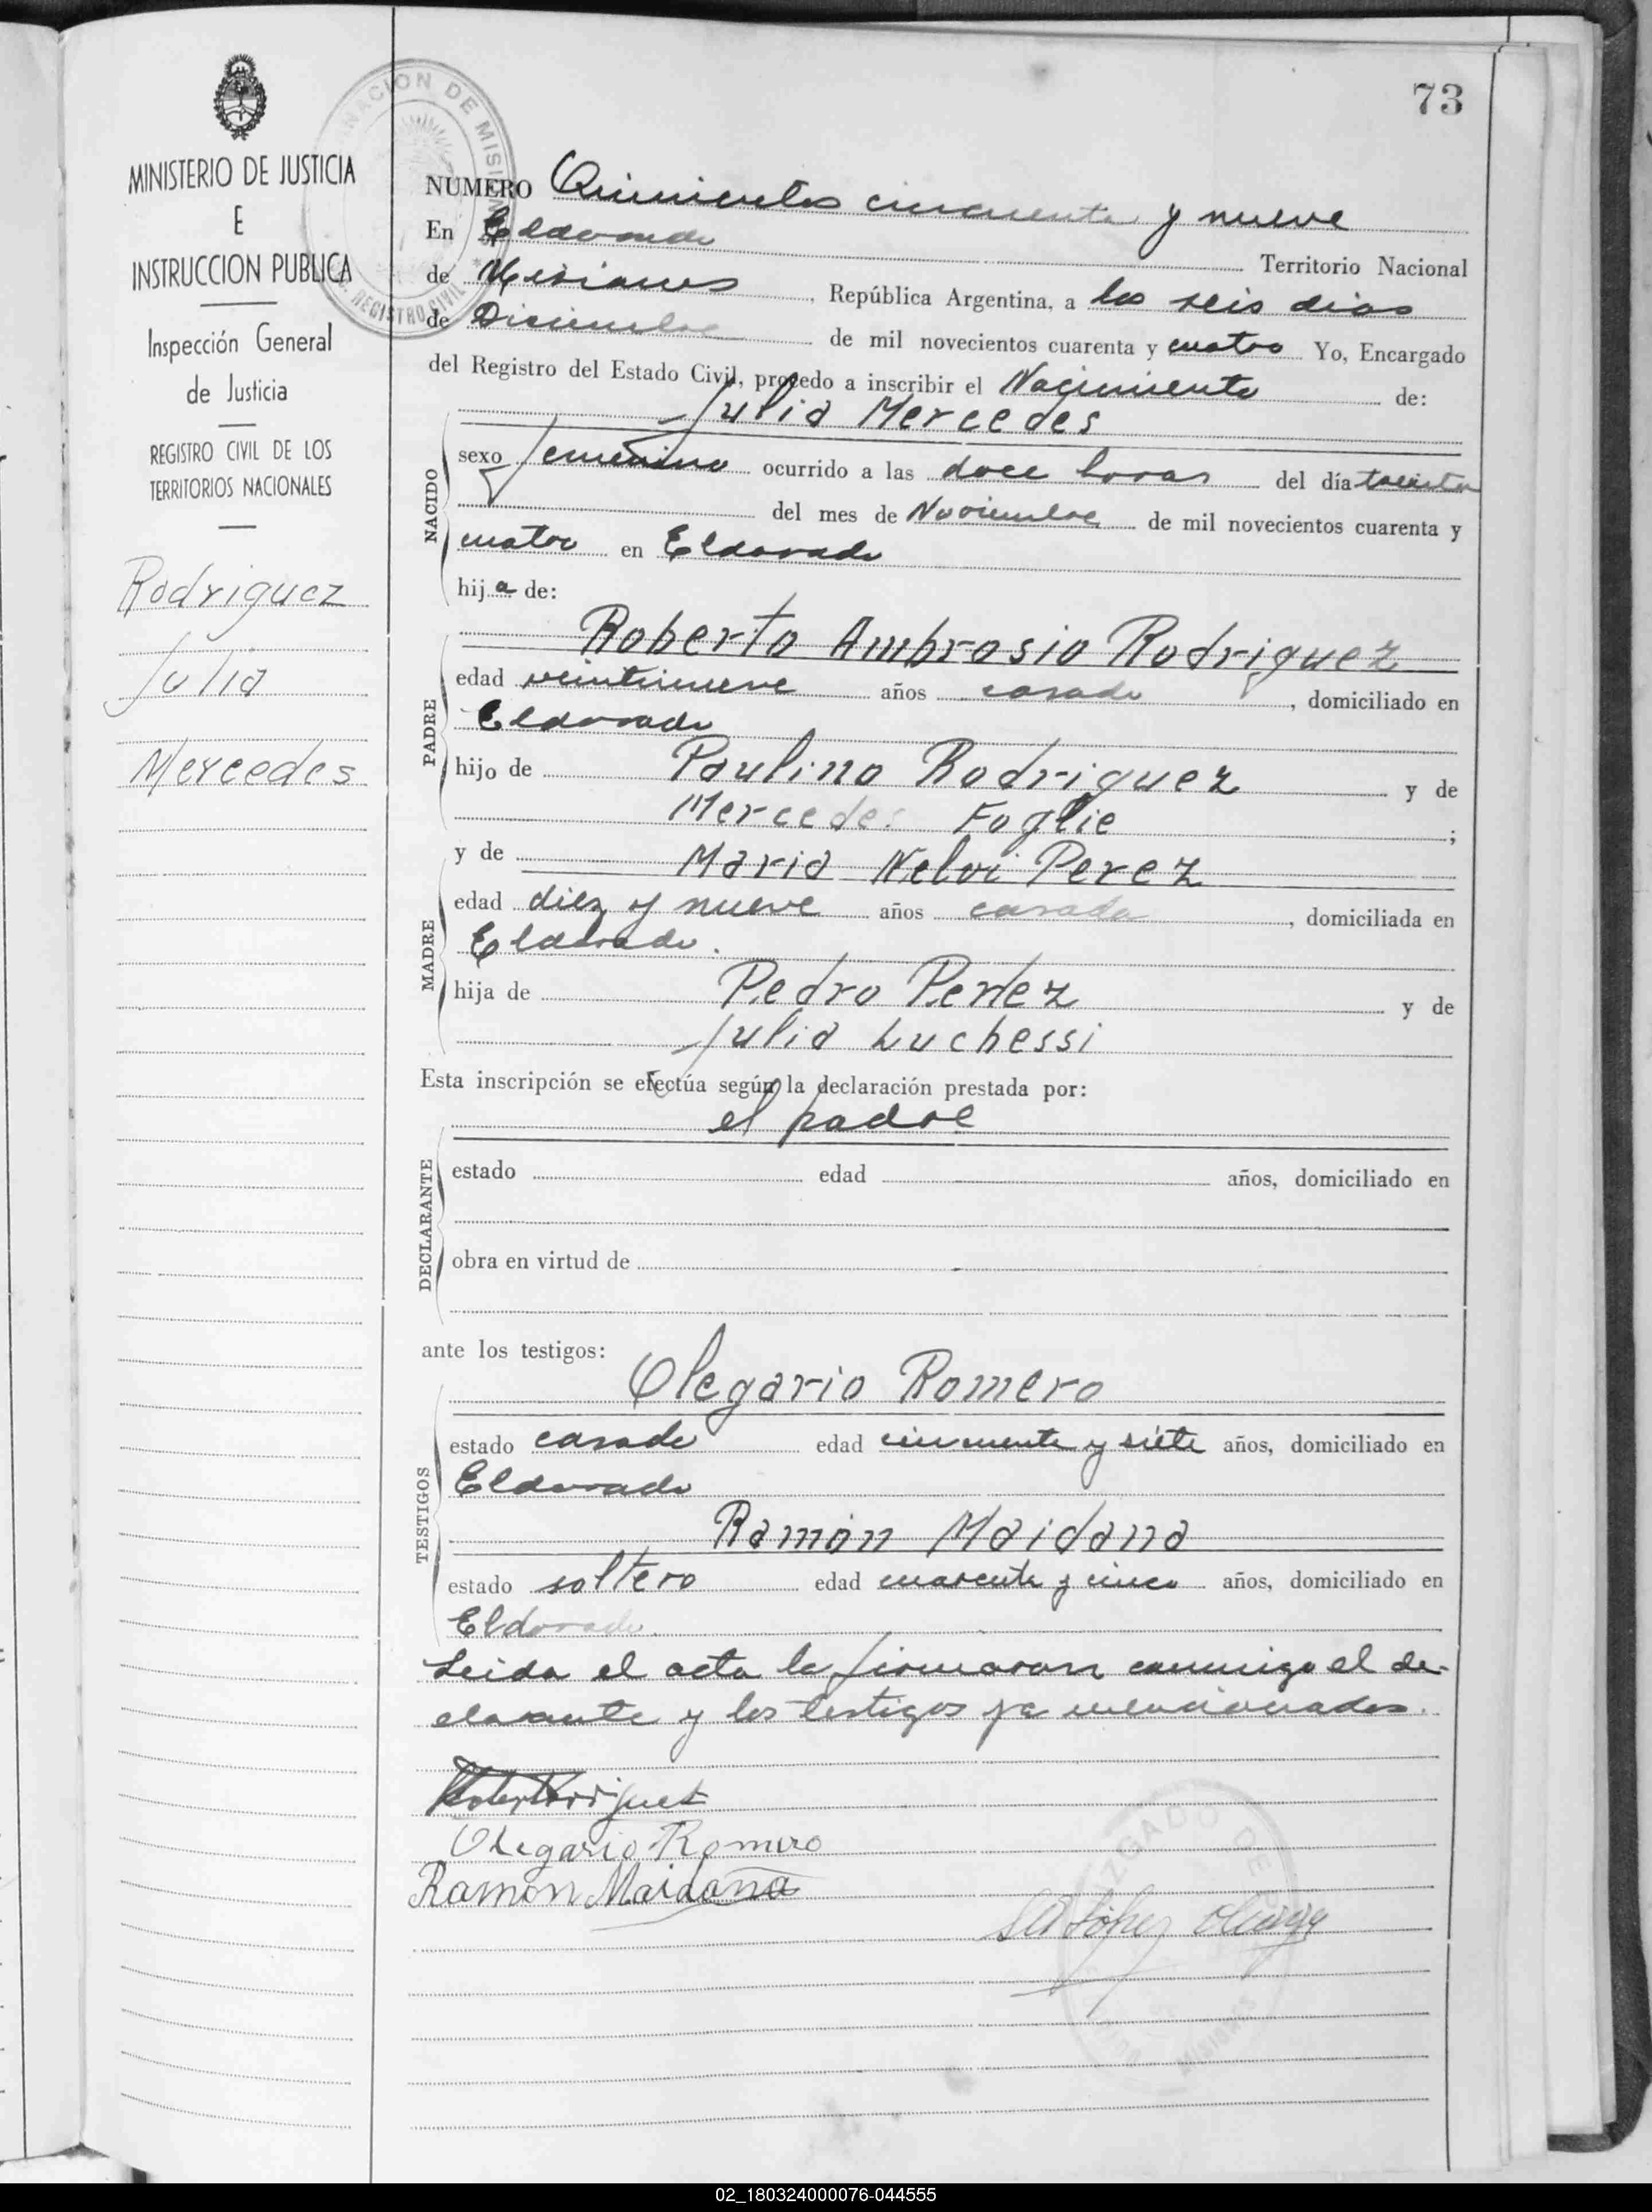 73
MINISTERIO DE JUSTICIA
E
INSTRUCCION PUBLICA
Inspección General
de Justicia
REGISTRO CIVIL DE LOS
TERRITORIOS NACIONALES
Rodriguez
Julia
Mercedes
NACION DE MISIONES
REGISTRO CIVIL
NUMERO Quinientos cincuenta y nueve
En Eldorado Territorio Nacional
de Misiones, República Argentina, a los seis dias
de Diciembre de mil novecientos cuarenta y cuatro Yo, Encargado
del Registro del Estado Civil, procedo a inscribir el Nacimiento de:
Julia Mercedes
NACIDO
sexo femenino ocurrido a las doce horas del día treinta
del mes de Noviembre de mil novecientos cuarenta y
cuatro en Eldorado
hija de:
Roberto Ambrosio Rodriguez
PADRE
edad veintinueve años casado, domiciliado en
Eldorado
hijo de Paulino Rodriguez y de
Mercedes Foglie;
y de Maria Nelvi Perez
MADRE
edad diez y nueve años casada, domiciliada en
Eldorado.
hija de Pedro Perez y de
Julia Luchessi
Esta inscripción se efectúa según la declaración prestada por:
el padre
DECLARANTE
estado edad años, domiciliado en
obra en virtud de
ante los testigos:
Olegario Romero
TESTIGOS
estado casado edad cincuenta y siete años, domiciliado en
Eldorado
Ramón Maidana
estado soltero edad cuarenta y cinco años, domiciliado en
Eldorado.
Leida el acta la firmaron conmigo el de-
clarante y los testigos ya mencionados.
Olegario Romero
Ramon Maidana
JUZGADO DE
MISIONES
02_180324000076-044555